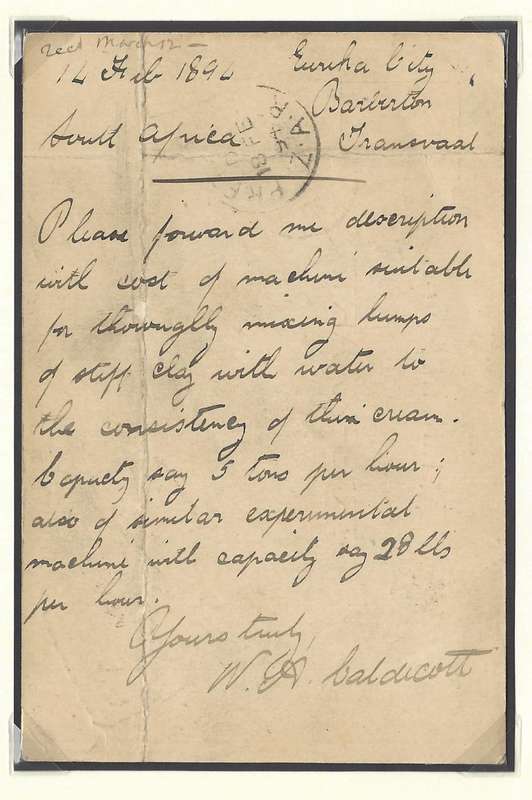 recd March 12 –
14 Feb 1894 Eureka City,
Barberton
South Africa Transvaal
18 FE
94
Z.A.R.
Please forward me description
with cost of machine suitable
for thoroughly mixing lumps
of stiff clay with water to
the consistency of thin cream.
Capacity say 5 tons per hour;
also of similar experimental
machine with capacity say 28 lbs
per hour.
Yours truly,
W. A. Caldecott